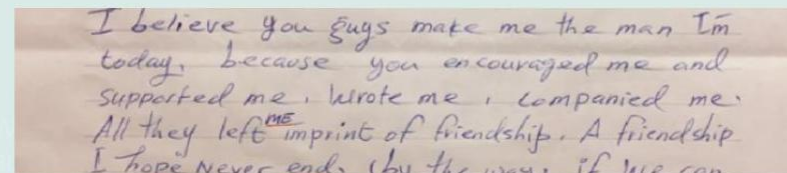 I believe you guys make me the man Im
today, because you encouraged me and
supported me, wrote me, companied me.
All they left ME imprint of friendship. A friendship
I hope Never end, (by the way, if we can